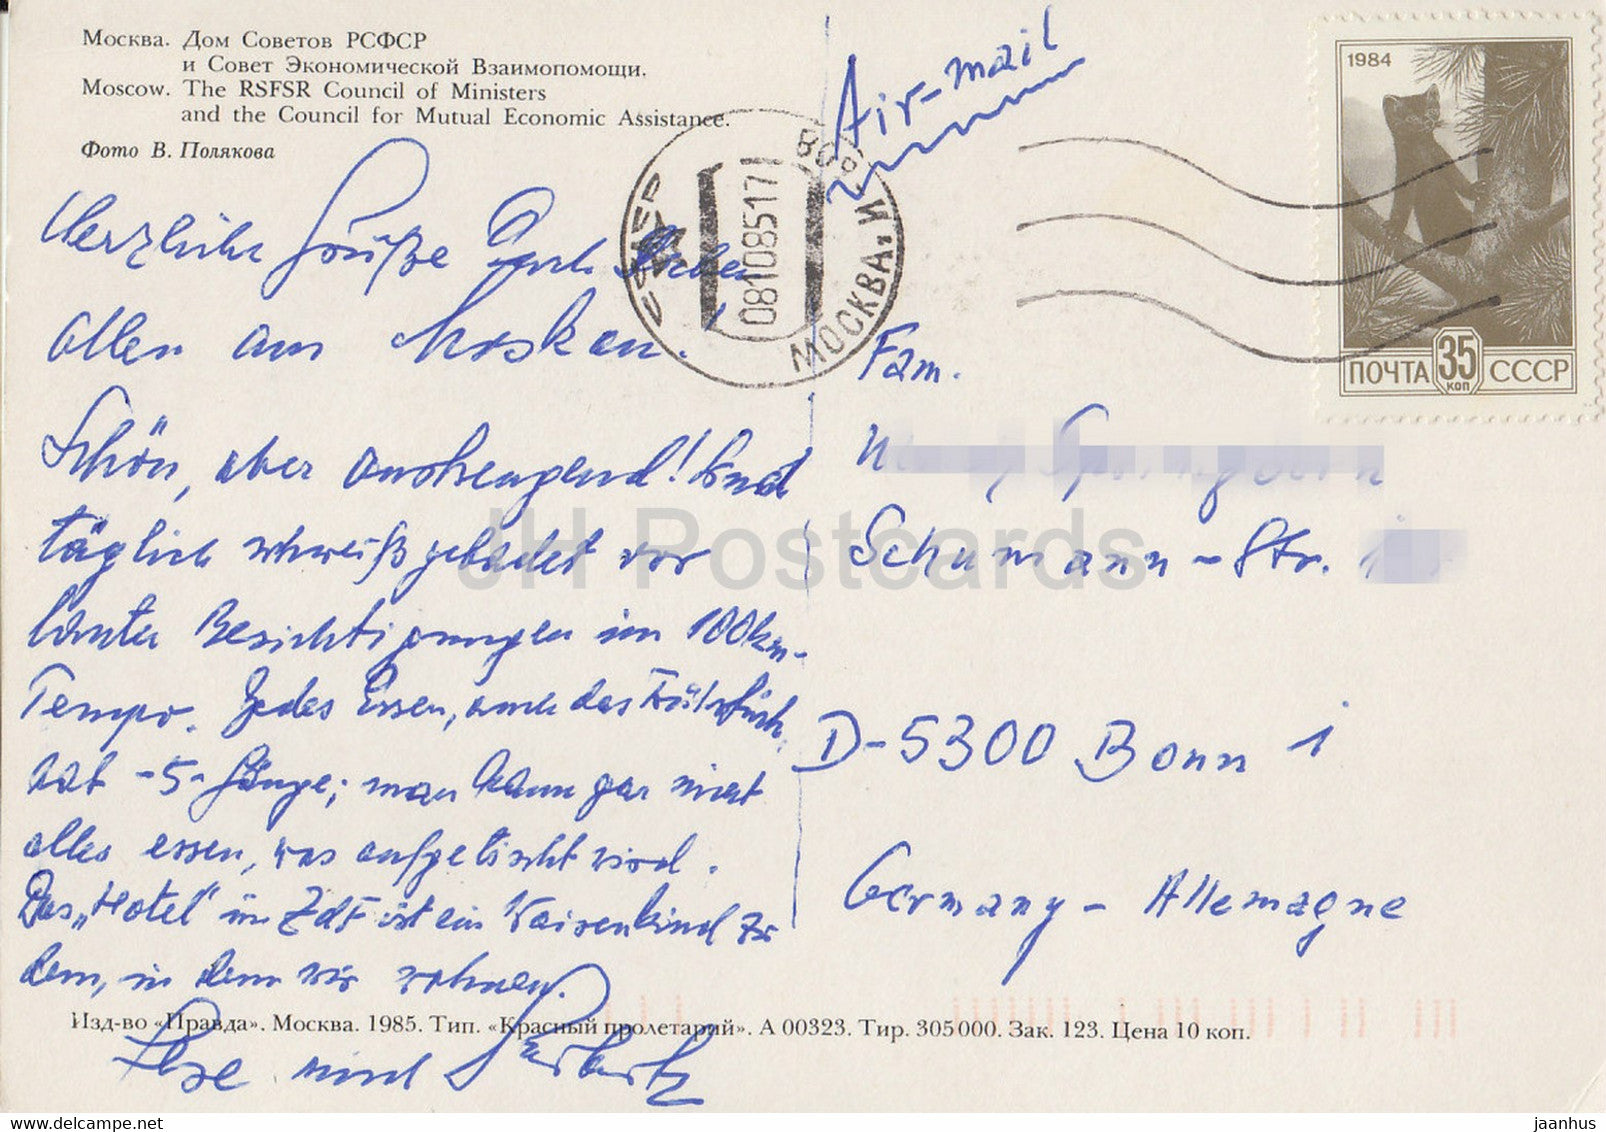 Москва. Дом Советов РСФСР
и Совет Экономической Взаимопомощи.
Moscow. The RSFSR Council of Ministers
and the Council for Mutual Economic Assistance.
Фото В. Полякова
Air-mail
1984
ПОЧТА 35 КОП СССР
МОСКВА, И
08108517
Herzliche Grüße Euch
allen aus Moskau!
Schön, aber anstrengend! Sind
täglich schweißgebadet vor
lauter Besichtigungen im 100km-
Tempo. Jedes Essen, auch das Frühstück,
hat -5- Gänge; man kann gar nicht
alles essen, was aufgetischt wird.
Das „Hotel" im ZdF ist ein Waisenkind zu
dem, in dem wir wohnen.
und
Fam.
Schumann-Str. 1
D-5300 Bonn 1
Germany - Allemagne
JH Postcards
Изд-во «Правда». Москва. 1985. Тип. «Красный пролетарий». А 00323. Тир. 305000. Зак. 123. Цена 10 коп.
www.delcampe.net
jaanhus